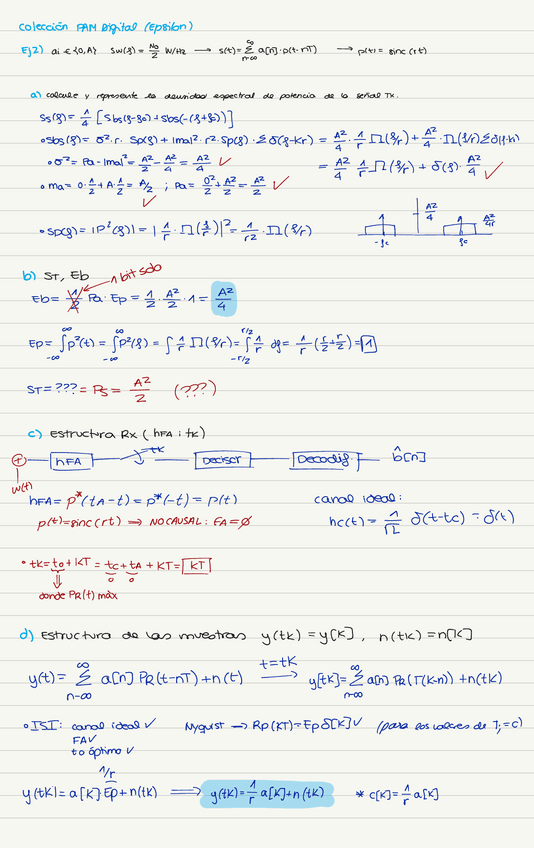 Colección PAM Digital (Epsilon)
Ej2) ai ∈ {0,A} Sw(f) = No/2 W/Hz → s(t) = Σ_{n=-∞}^{∞} a[n]·p(t-nT) → p(t) = sinc(rt)
a) calcule y represente la densidad espectral de potencia de la señal Tx.
Ss(f) = 1/4 [Sbs(f-fo) + Sbs(-(f+fo))]
• Sbs(f) = σ²·r·Sp(f) + |ma|²·r²·Sp(f)·Σδ(f-Kr) = A²/4 1/r Π(f/r) + A²/4 · Π(f/r)Σδ(f-k)
• σ² = Pa - |ma|² = A²/2 - A²/4 = A²/4 ✓ = A²/4 1/r Π(f/r) + δ(f)·A²/4 ✓
• ma = 0·1/2 + A·1/2 = A/2 ✓ ; Pa = 0²/2 + A²/2 = A²/2 ✓
• Sp(f) = |P²(f)| = |1/r · Π(f/r)|² = 1/r² · Π(f/r)
A²/4 A²/4r
-fc fc
b) ST, Eb
1 bit/sdo
Eb = 1/2 Pa·Ep = 1/2 · A²/2 · 1 = A²/4
Ep = ∫_{-∞}^{∞} p²(t) = ∫_{-∞}^{∞} p²(f) = ∫ 1/r Π(f/r) = ∫_{-r/2}^{r/2} 1/r df = 1/r (r/2 + r/2) = 1
ST = ??? = Ps = A²/2 (???)
c) Estructura Rx (hFA ; tk)
+ hFA tk Decisor Decodif b̂[n]
w(t)
hFA = p*(tA-t) = p*(-t) = p(t) canal ideal:
p(t) = sinc(rt) ⇒ NO CAUSAL: tA = Ø hc(t) = 1/√L δ(t-tc) = δ(t)
• tk = to + KT = tc + tA + KT = KT
0 0
donde PR(t) máx
d) Estructura de las muestras y(tk) = y[K], n(tk) = n[K]
y(t) = Σ_{n=-∞}^{∞} a[n] PR(t-nT) + n(t) t=tK → y[tK] = Σ_{n=-∞}^{∞} a[n] PR(T(K-n)) + n(tK)
• ISI: canal ideal ✓ Nyquist → Rp(KT) = Ep δ[K] ✓ (para los valores de
FA ✓
to óptimo ✓
1/r
y(tK) = a[K] Ep + n(tK) ⇒ y(tK) = 1/r a[K] + n(tK) * c[K] = 1/r a[K]